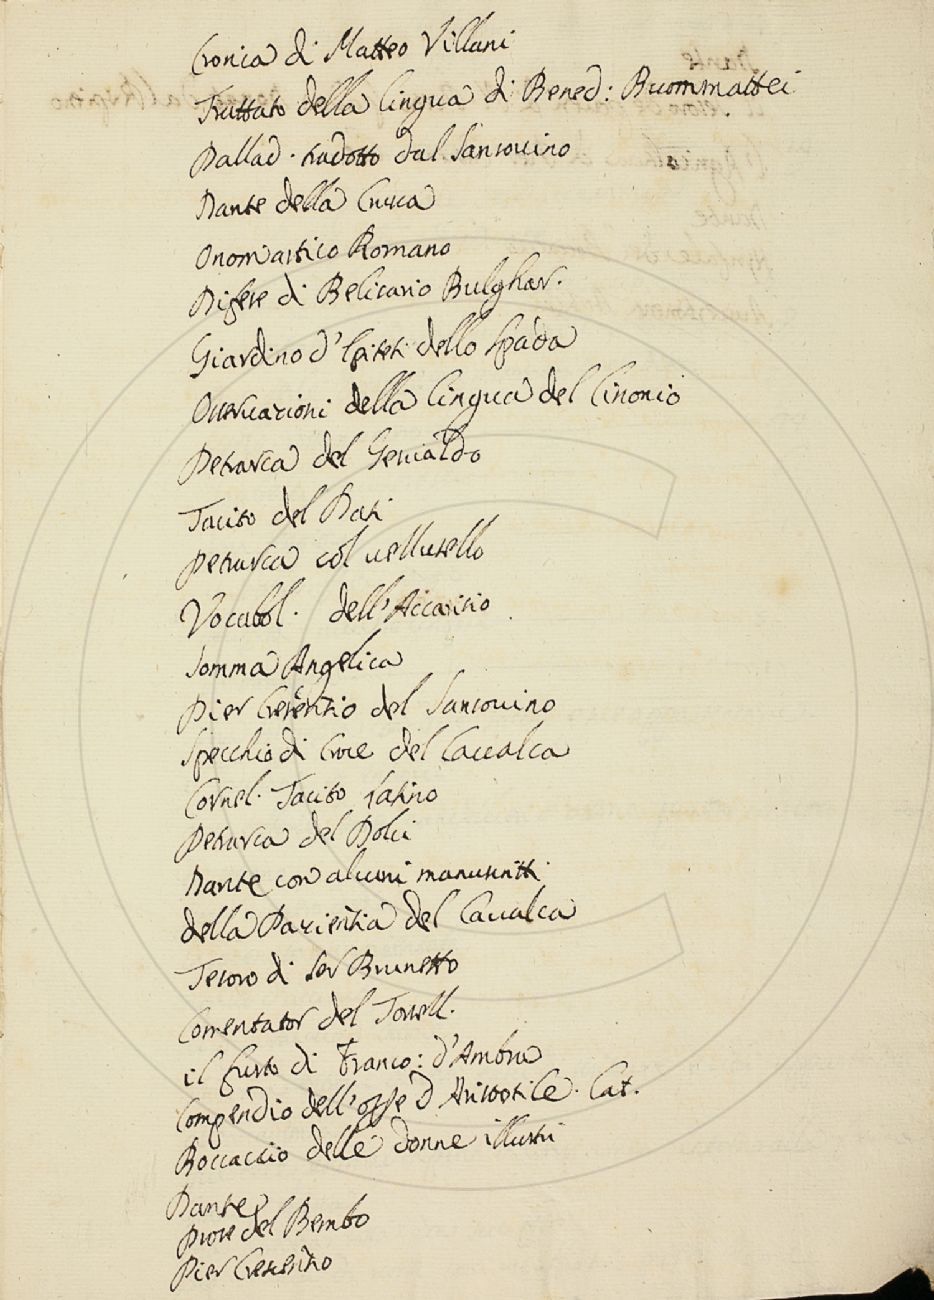 Cronica di Matteo Villani
Trattato della lingua di Bened: Buommattei
Pallad. tradotto dal Sansouino
Dante della Crusca
Onomastico Romano
Difese di Belisario Bulghar.
Giardino d'Epiteti dello Spada
Osseruazioni della lingua del Cinonio
Petrarca del Gesualdo
Tacito del Dati
Petrarca col uellutello
Vocabol. dell'Accarisio
Somma Angelica
Pier Crescentio del Sansouino
Specchio di Croce del Caualca
Cornel. Tacito latino
Petrarca del Dolci
Dante con alcuni manuscritti
della Pacientia del Caualca
Tesoro di Ser Brunetto
Comentator del
il furto di Franco: d'Ambra
Compendio dell'opse d'Aristotile. Lat.
Boccaccio delle donne illustri
Dante
Prose del Bembo
Pier Crescentio